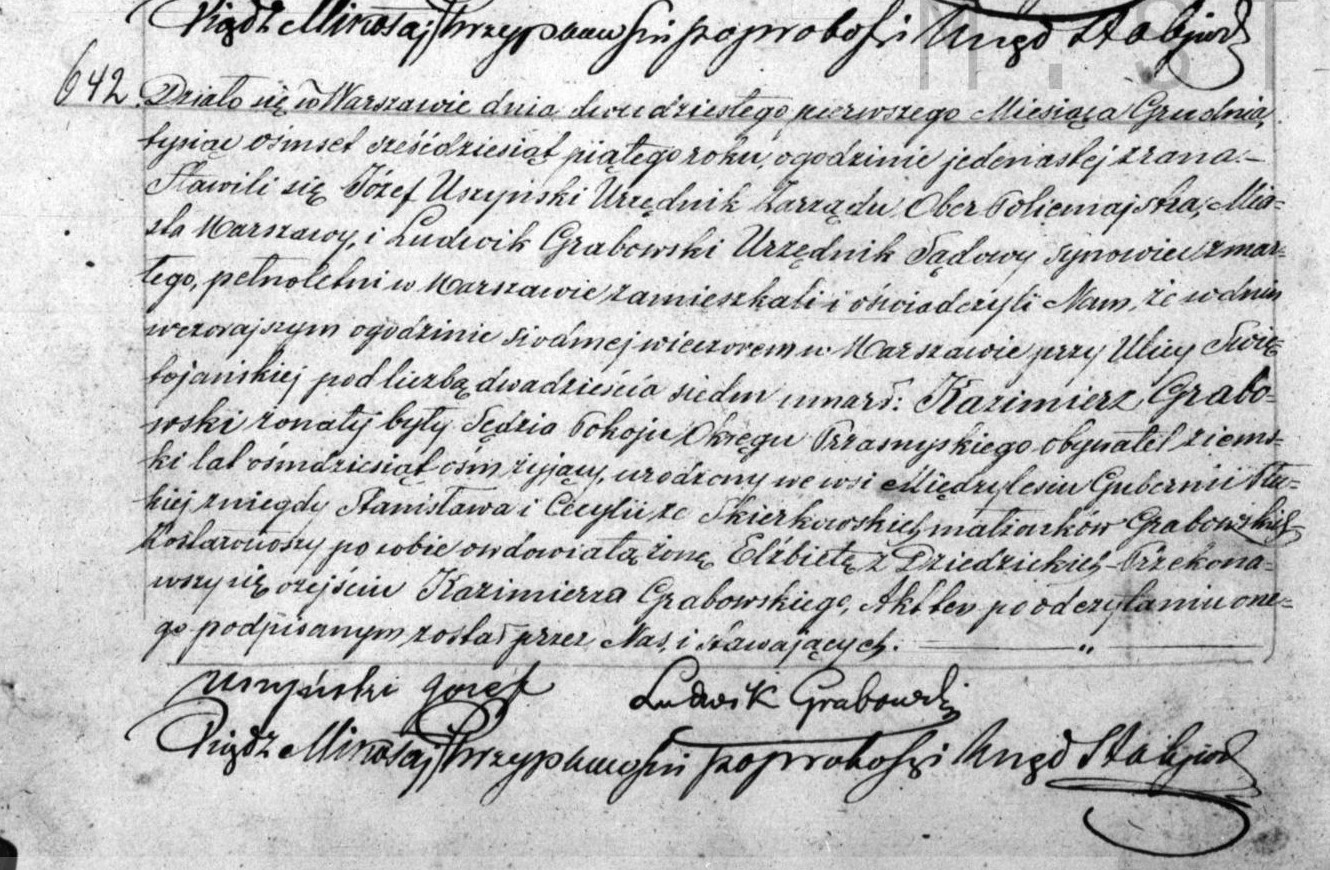 Xiądz Mikołaj Przypkowski poproboszcz Urzęd Sta Cywil
642. Działo się w Warszawie dnia dwudziestego pierwszego Miesiąca Grudnia,
tysiąc ośmset sześćdziesiąt piątego roku, o godzinie jedenastej z rana.—
Stawili się Józef Uszyński Urzędnik Zarządu Ober Policmajstra, Mia-
sta Warszawy, i Ludwik Grabowski Urzędnik Sądowy synowiec zmar-
łego, pełnoletni w Warszawie zamieszkali i oświadczyli Nam, że w dniu
wczorajszym o godzinie siódmej wieczorem w Warszawie przy Ulicy Święto
tojańskiej pod liczbą dwadzieścia siedm umarł: Kazimierz Grabo-
wski żonaty były Sędzia Pokoju Okręgu Przasnyskiego obywatel ziems-
ki lat ośmdziesiąt ośm żyjący, urodzony we wsi Międzylesiu Gubernii Płoc-
kiej z niegdy Stanisława i Cecylii ze Skierkowskich małżonków Grabowskich
Zostawiwszy po sobie owdowiałą żonę Elżbietę z Dziedzickich — Przekona-
wszy się o zejściu Kazimierza Grabowskiego, Akt ten po odczytaniu one-
go podpisanym został przez Nas, i stawających.
Uszyński Józef Ludwik Grabowski
Xiądz Mikołaj Przypkowski Urzęd Sta Cywil